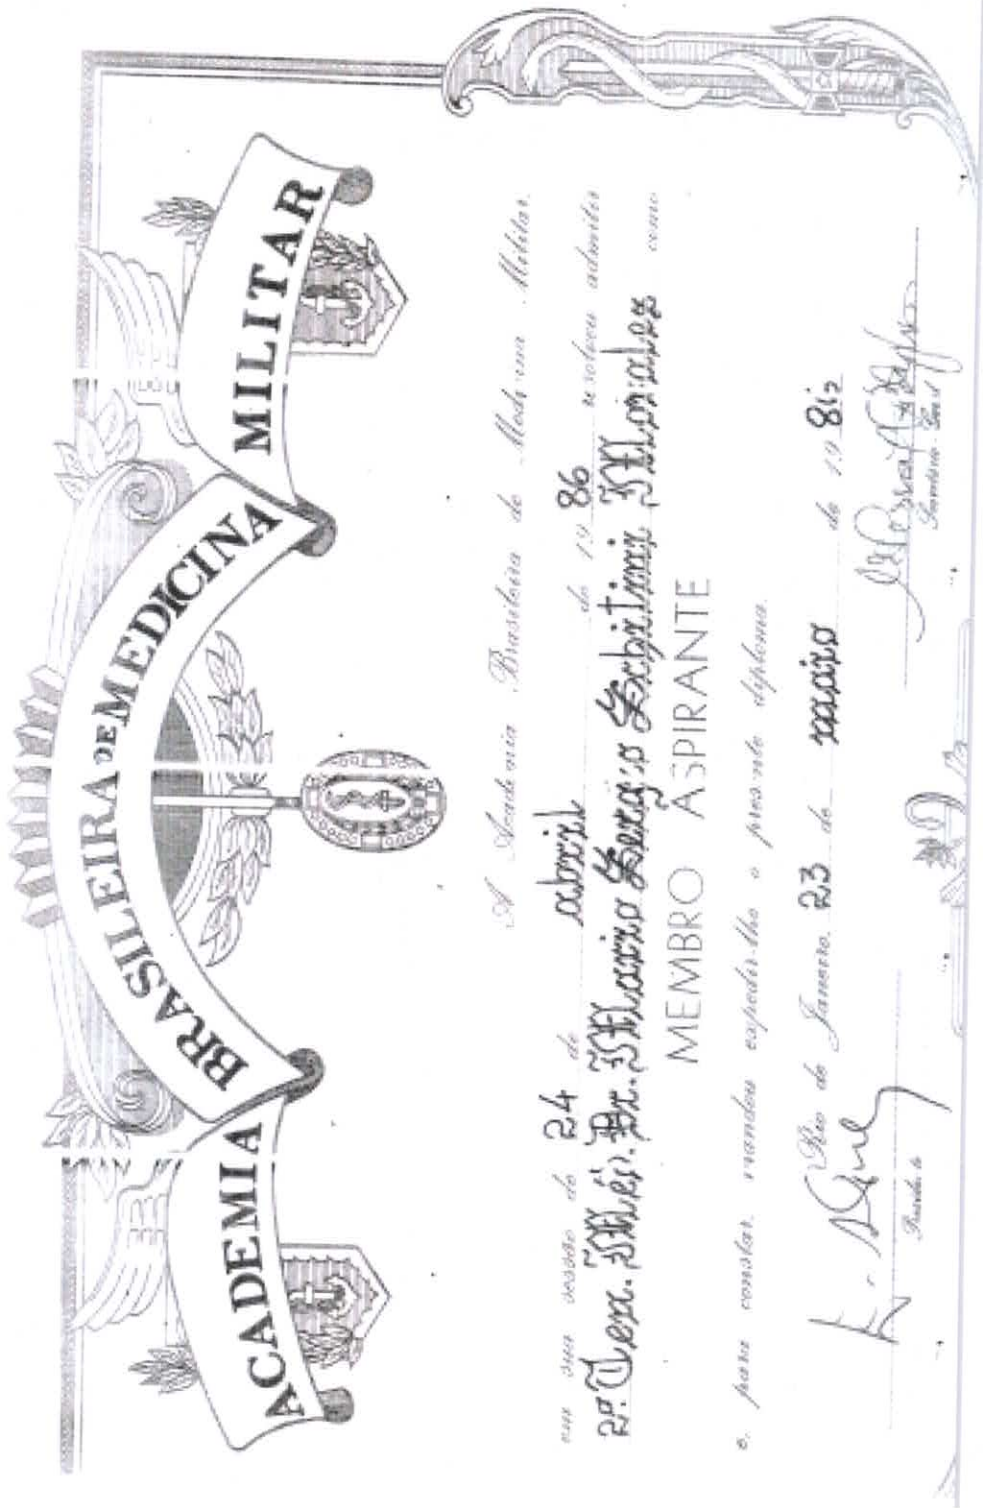 ACADEMIA BRASILEIRA DE MEDICINA MILITAR
A Academia Brasileira de Medicina Militar,
em sua sessão de 24 de abril de 1986 resolveu admitir
2º Ten. Méd. Dr. Mario Sergio como
MEMBRO ASPIRANTE
e, para constar, mandou expedir-lhe o presente diploma.
Rio de Janeiro, 23 de maio de 19
Presidente
Secretário - Geral